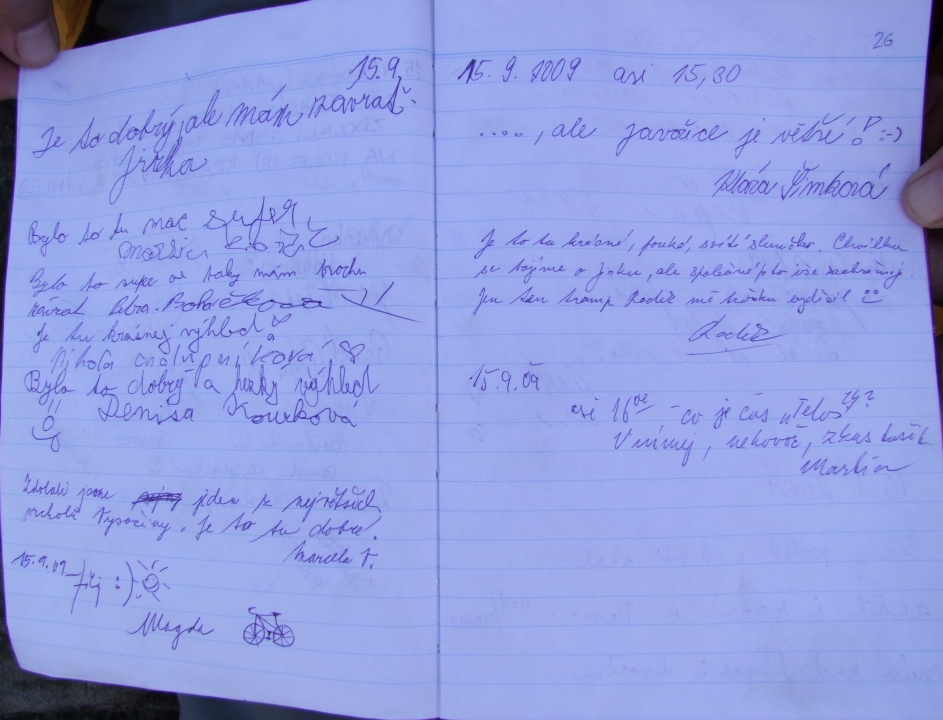 15.9.
Je to dobrý, ale mám závrať.
Jirka
Bylo to tu moc super,
Bylo to super ale taky mám trochu
závrať Petra.
Je tu krásnej výhled!
Nikola Chalupníková
Bylo to dobrý a hezký výhled
Denisa Kourková
Zdolali jsme jeden z největších
vrcholů Vysočiny. Je to tu dobré.
Marcela V.
15.9.09 :)
Magda
26
15. 9. 2009 asi 15,30
...., ale Javořice je větší! :-)
Klára Šimková
Je to tu krásné, fouká, svítí sluníčko. Chvilku
se bojíme o Jirku, ale společně to vše
Jen ten tramp Raděž mě trošku vyděsil
Raděž
15.9.09
asi 16 - co je čas a
Vnímej, nehovoř, zkus tušit
Martin